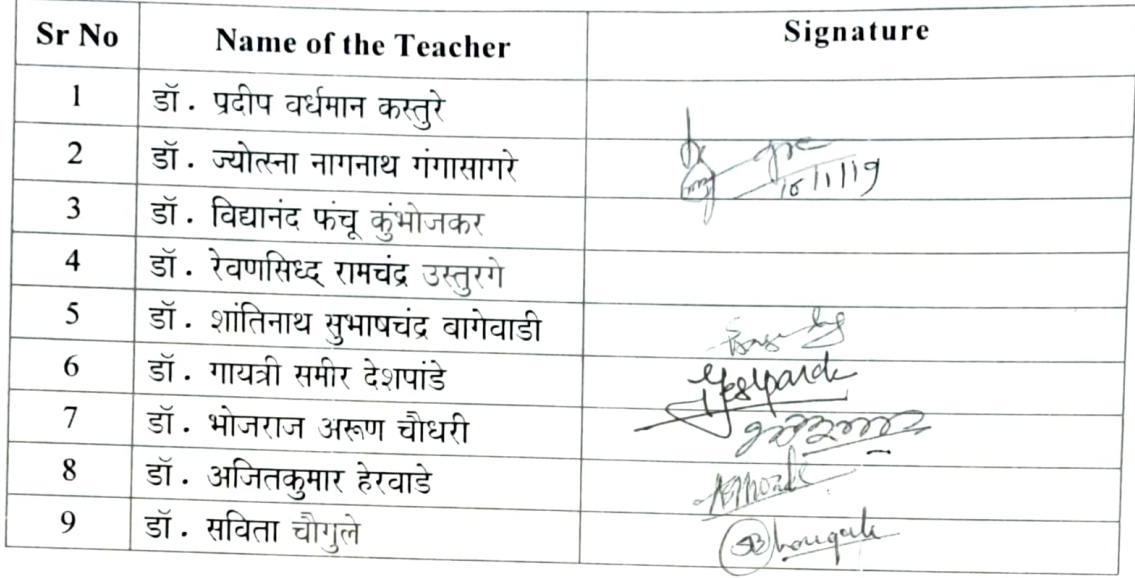 Sr No Name of the Teacher Signature
1 डॉ. प्रदीप वर्धमान कस्तुरे
2 डॉ. ज्योत्स्ना नागनाथ गंगासागरे 10/1/19
3 डॉ. विद्यानंद फंचू कुंभोजकर
4 डॉ. रेवणसिध्द रामचंद्र उस्तुरगे
5 डॉ. शांतिनाथ सुभाषचंद्र वागेवाडी
6 डॉ. गायत्री समीर देशपांडे
7 डॉ. भोजराज अरूण चौधरी
8 डॉ. अजितकुमार हेरवाडे
9 डॉ. सविता चौगुले